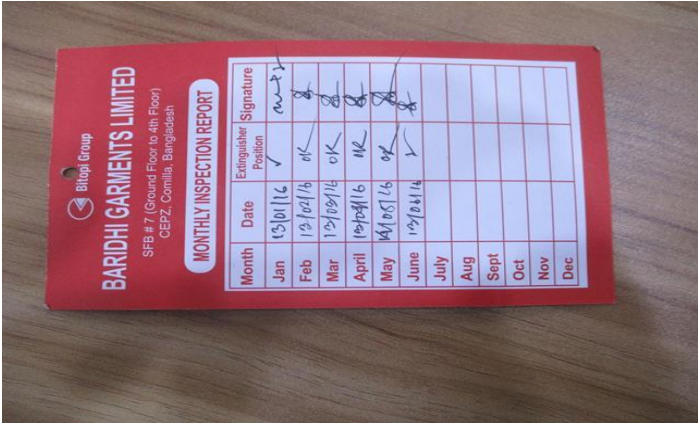 Bitopi Group
BARIDHI GARMENTS LIMITED
SFB # 7 (Ground Floor to 4th Floor)
CEPZ, Comilla, Bangladesh
MONTHLY INSPECTION REPORT
Month Date Extinguisher Position Signature
Jan 13/01/16 ✓
Feb 13/02/16 OK
Mar 13/03/16 OK
April 13/04/16 OK
May 14/05/16 OK
June 13/06/16 ✓
July
Aug
Sept
Oct
Nov
Dec